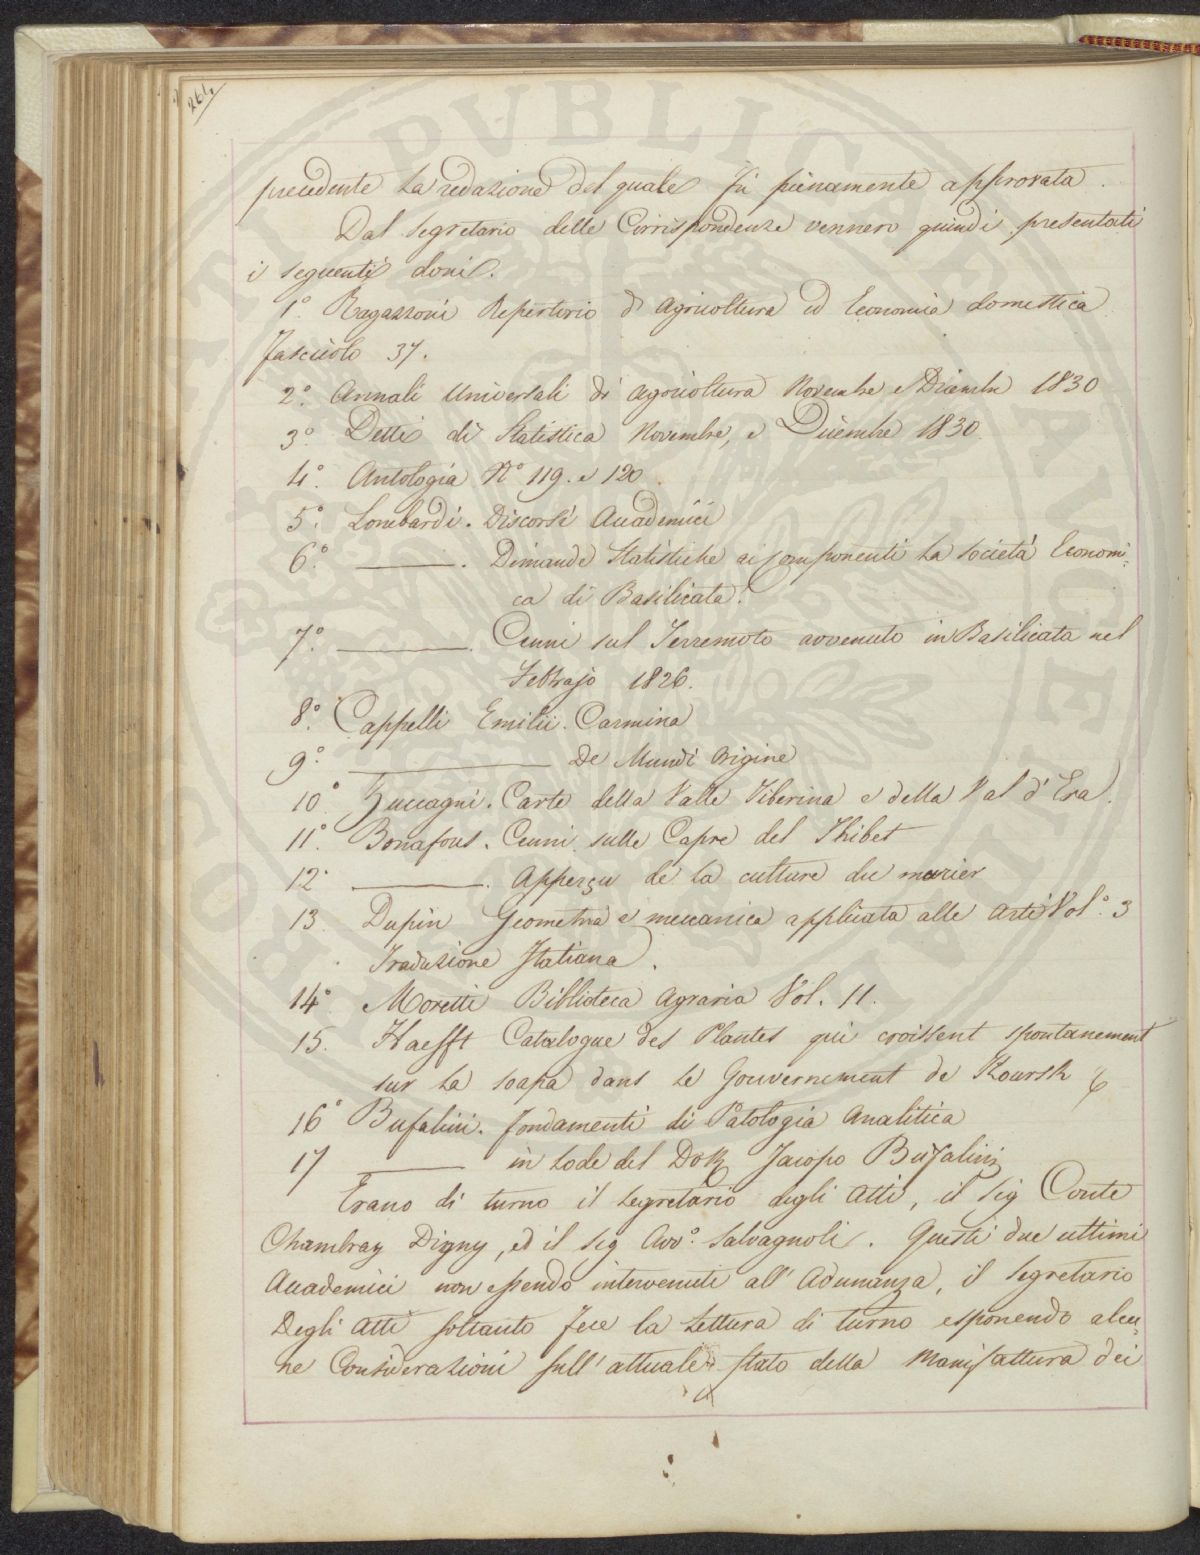 264
precedente la redazione del quale fù pienamente approvata.
Dal segretario delle Corrispondenze vennero quindi presentati
i seguenti doni.
1° Ragazzoni Repertorio d'agricoltura ed Economia domestica
fascicolo 37.
2° Annali Universali di agricoltura Novembre e Dicembre 1830
3° Detti di Statistica Novembre, e Dicembre 1830
4° Antologia N° 119. e 120.
5° Lombardi. Discorsi Accademici
6° ———. Dimande Statistiche ai componenti la società Economi-
ca di Basilicata.
7° ———. Cenni sul Terremoto avvenuto in Basilicata nel
Febbrajo 1826.
8° Cappelli Emilii. Carmina
9° ——— De Mundi Origine
10° Zuccagni. Carte della Valle Tiberina e della Val d'Era.
11° Bonafous. Cenni sulle Capre del Thibet
12° ———. Apperçu de la culture du murier
13. Dupin Geometria e meccanica applicata alle arti Vol.° 3
Traduzione Italiana.
14° Moretti Biblioteca Agraria Vol. 11.
15. Haefft Catalogue des Plantes qui croissent spontanement
sur la soapa dans le Gouvernement de Koursk
16° Bufalini. fondamenti di Patologia Analitica
17 ——— in lode del Dott. Jacopo Bufalini
Erano di turno il segretario degli Atti, il sig Conte
Chambray Digny, ed il sig Avv.° Salvagnoli. Questi due ultimi
Accademici non essendo intervenuti all'Adunanza, il segretario
Degli Atti soltanto fece la lettura di turno esponendo alcu-
ne Considerazioni sull'attuale stato della Manifattura dei